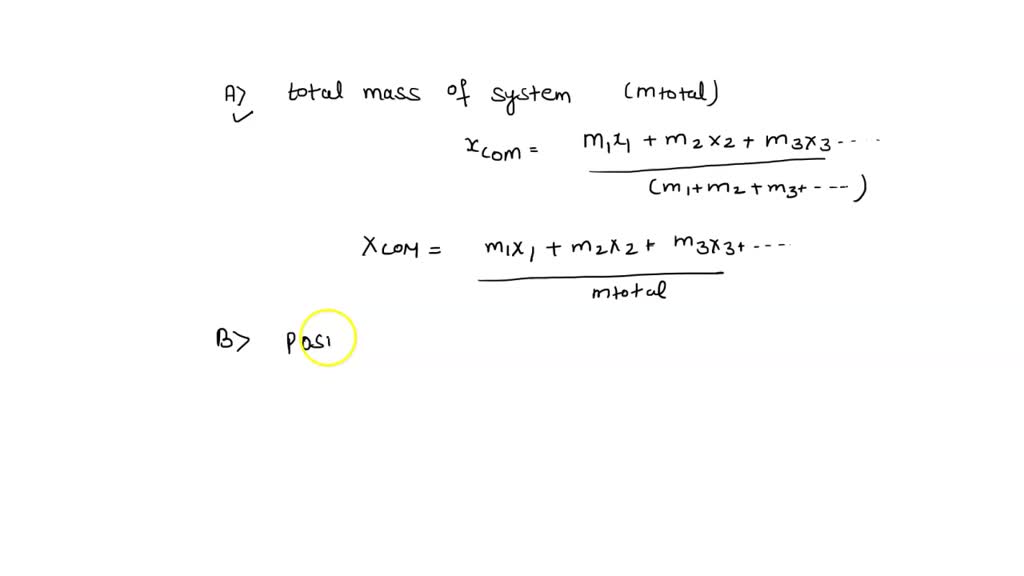 A> total mass of system (mtotal)
xcom = m1x1 + m2x2 + m3x3 ----
(m1+m2+m3+----)
XCOM = m1x1 + m2x2 + m3x3+----
mtotal
B> Posi